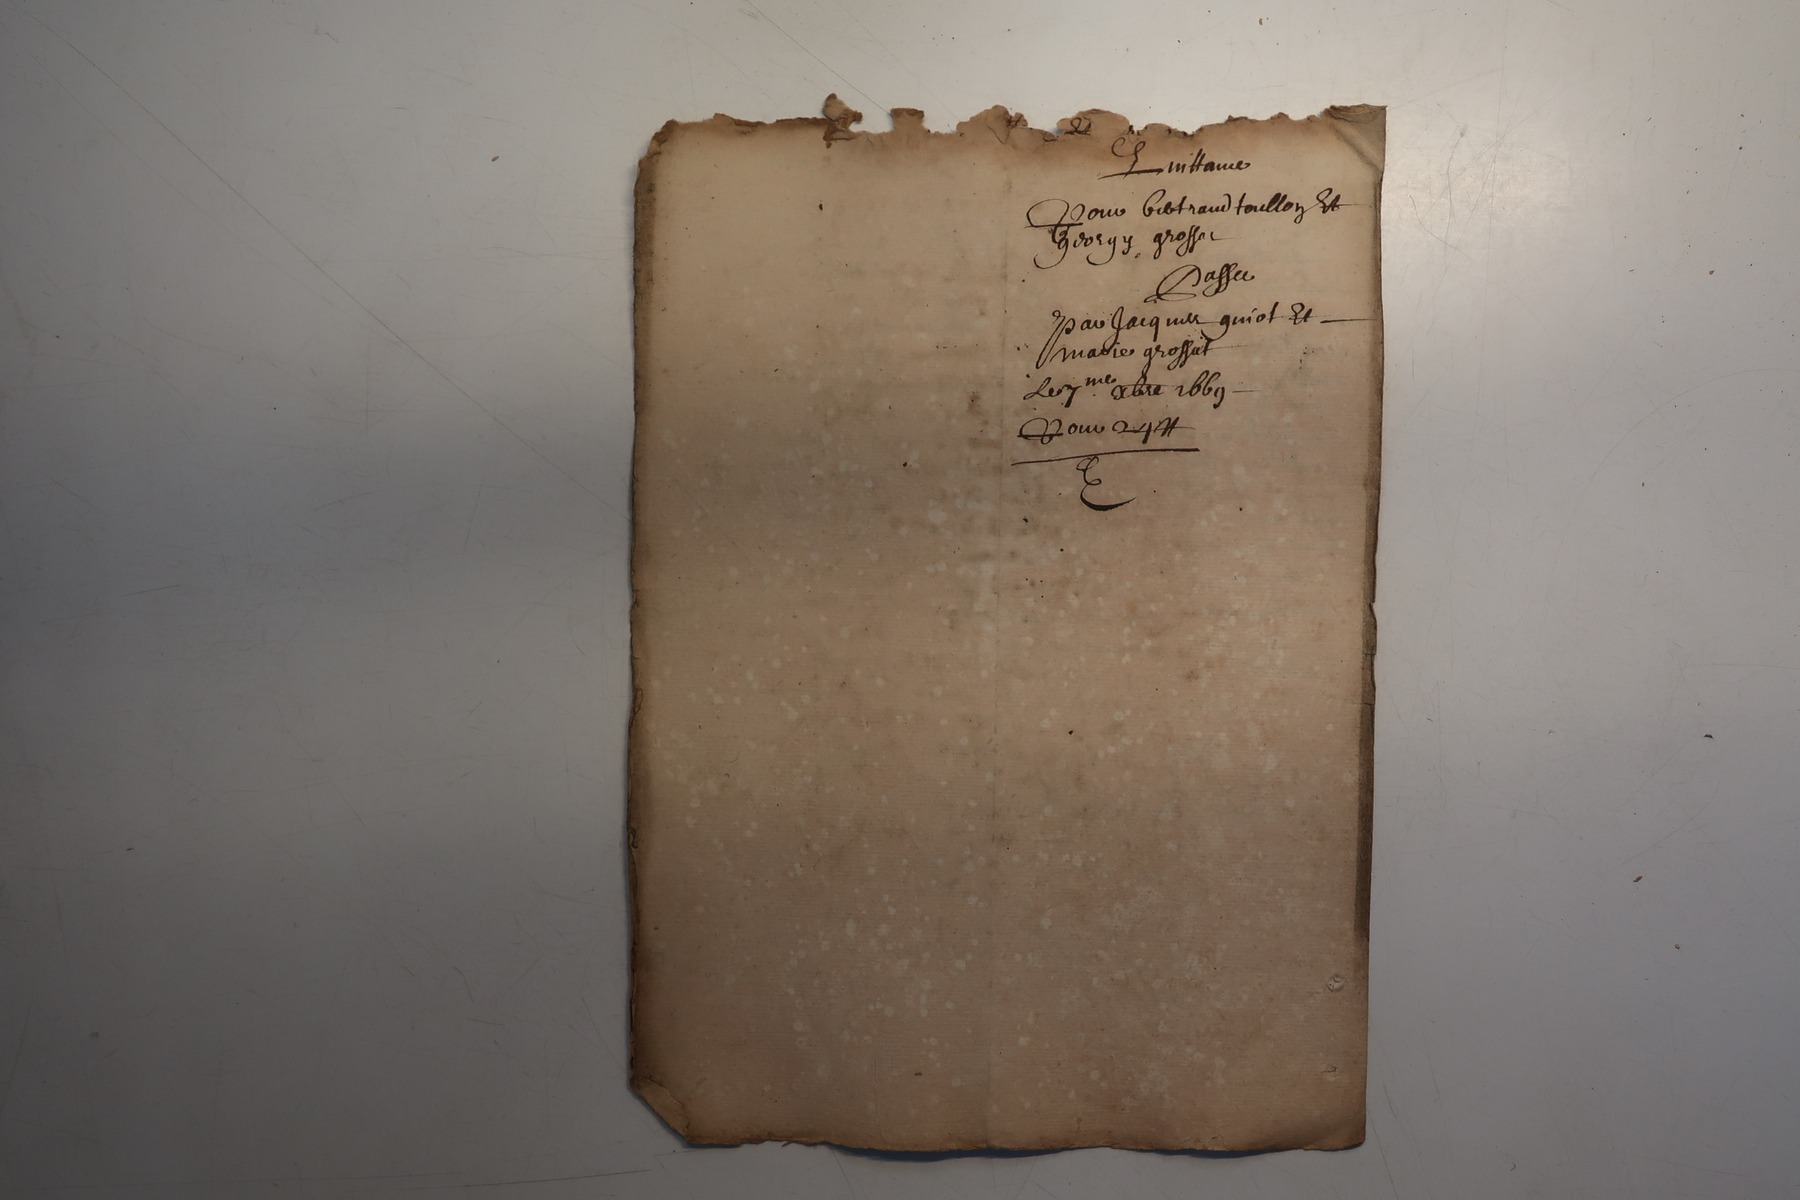 Quittance
Pour bertrand toullon Et
Georgy grosset
Passee
Par Jacques guiot Et
marie grossat
Le 7me xbre 1669
Pour 24 tt